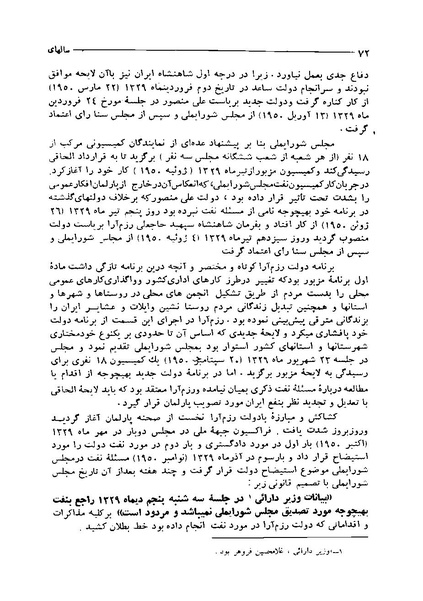 ۷۲ سالهای
دفاع جدی بعمل نیاورد . زیرا در درجه اول شاهنشاه ایران نیز باآن لایحه موافق
نبودند و سرانجام دولت ساعد در تاریخ دوم فروردینماه ۱۳۲۹ (۲۲ مارس ۱۹۵۰)
از کار کناره گرفت ودولت جدید بریاست علی منصور در جلسه مورخ ۲۴ فروردین
ماه ۱۳۲۹ (۱۳ آوریل ۱۹۵۰) از مجلس شورایملی و سپس از مجلس سنا رای اعتماد
گرفت .
مجلس شورایملی بنا بر پیشنهاد عده‌ای از نمایندگان کمیسیونی مرکب از
۱۸ نفر (از هر شعبه از شعب ششگانه مجلس سه نفر) برگزید تا به قرارداد الحاقی
رسیدگی‌کند وکمیسیون مزبور ازتیرماه ۱۳۲۹ (ژوئیه ۱۹۵۰) کار خود را آغازکرد.
درجریان‌کار کمیسیون نفت‌مجلس‌شورایملی،که‌انعکاس‌آن‌درخارج ازپارلمان افکارعمومی
را بشدت تحت تأثیر قرار داده بود ، دولت علی منصور که برخلاف دولتهای‌گذشته
در برنامه خود بهیچوجه نامی از مسئله نفت نبرده بود روز پنجم تیر ماه ۱۳۲۹ (۲۶
ژوئن ۱۹۵۰) از کار افتاد و بفرمان شاهنشاه سپهبد حاجعلی رزم‌آرا بریاست دولت
منصوب گردید وروز سیزدهم تیرماه ۱۳۲۹ (۴ ژوئیه ۱۹۵۰) از مجلس شورایملی و
سپس از مجلس سنا رای اعتماد گرفت
برنامه دولت رزم‌آرا کوتاه و مختصر و آنچه درین برنامه تازگی داشت مادهٔ
اول برنامهٔ مزبور بودکه تغییر درطرز کارهای اداری‌کشور وواگذاری‌کارهای عمومی
محلی را بدست مردم از طریق تشکیل انجمن های محلی در روستاها و شهرها و
استانها و همچنین تبدیل زندگانی مردم روستا نشین وایلات و عشایر ایران را
بزندگانی مترقی پیش‌بینی نموده بود . رزم‌آرا در اجرای این قسمت از برنامه دولت
خود پافشاری میکرد و لایحهٔ جدیدی که اساس آن تا حدودی بر یکنوع خودمختاری
شهرستانها و استانهای کشور استوار بود بمجلس شورایملی تقدیم نمود و مجلس
در جلسه ۲۳ شهریور ماه ۱۳۲۹ (۲۰ سپتامبر ۱۹۵۰) یك کمیسیون ۱۸ نفری برای
رسیدگی به لایحهٔ مزبور برگزید . اما در برنامهٔ دولت جدید بهیچوجه از اقدام یا
مطالعه دربارهٔ مسئلهٔ نفت ذکری بمیان نیامده ورزم‌آرا معتقد بود که باید لایحهٔ الحاقی
با تعدیل و تجدید نظر بنفع ایران مورد تصویب پارلمان قرار گیرد .
کشاکش و مبارزهٔ بادولت رزم‌آرا نخست از صحنه پارلمان آغاز گردید
وروزبروز شدت یافت . فراکسیون جبههٔ ملی در مجلس دوبار در مهر ماه ۱۳۲۹
(اکتبر ۱۹۵۰) بار اول در مورد دادگستری و بار دوم در مورد نفت دولت را مورد
استیضاح قرار داد و بارسوم در آذرماه ۱۳۲۹ (نوامبر ۱۹۵۰) مسئلهٔ نفت درمجلس
شورایملی موضوع استیضاح دولت قرار گرفت و چند هفته بعداز آن تاریخ مجلس
شورایملی با تصمیم قانونی زیر :
((بیانات وزیر دارائی ۱ در جلسه سه شنبه پنجم دیماه ۱۳۲۹ راجع بنفت
بهیچوجه مورد تصدیق مجلس شورایملی نمیباشد و مردود است)) برکلیه مذاکرات
و اقداماتی که دولت رزم‌آرا در مورد نفت انجام داده بود خط بطلان کشید .
۱- وزیر دارائی ، غلامحسین فروهر بود .